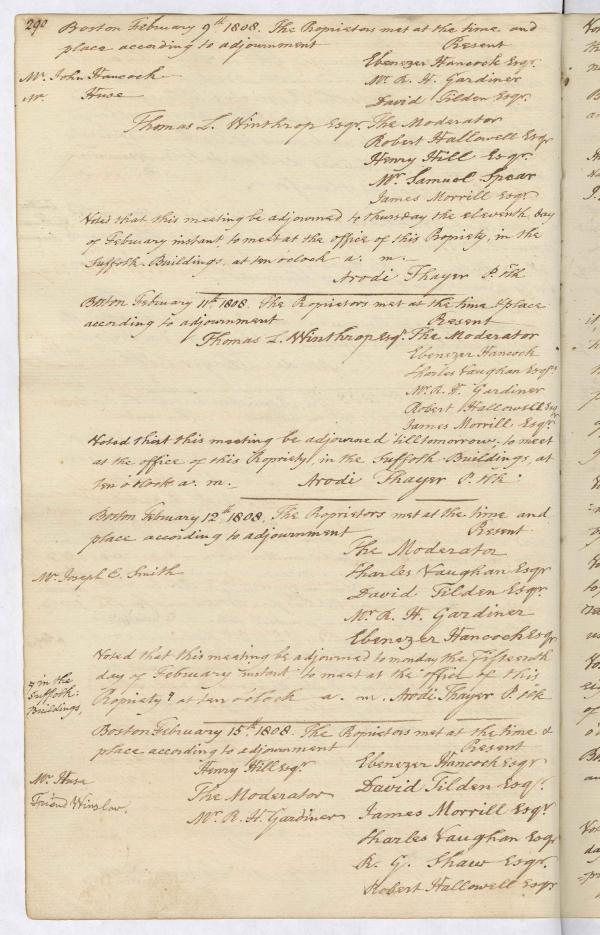 290
Boston February 9th 1808. The Proprietors met at the time and
place according to adjournment Present
Ebenezer Hancock Esqr.
Mr. John Hancock
Mr. R. H. Gardiner
Mr. Huse
David Tilden Esqr.
Thomas L. Winthrop Esqr. The Moderator
Robert Hallowell Esqr
Henry Hill Esqr.
Mr. Samuel Spear
James Morrill Esqr.
Voted that this meeting be adjourned to thursday the eleventh day
of February instant to meet at the office of this Propriety, in the
Suffolk Buildings, at ten oclock a. m.
Arodi Thayer P. Clk
Boston February 11th 1808. The Proprietors met at the time & place
according to adjournment Present
Thomas L. Winthrop Esqr. The Moderator
Ebenezer Hancock
Charles Vaughan Esqrs
Mr. R. H. Gardiner
Robert Hallowell Esqr
James Morrill Esqr.
Voted that this meeting be adjourned till tomorrow, to meet
at the office of this Propriety, in the Suffolk Buildings, at
ten o'clock a. m. Arodi Thayer P. Clk:
Boston February 12th 1808. The Proprietors met at the time and
place according to adjournment Present
The Moderator
Mr. Joseph E. Smith
Charles Vaughan Esqr
David Tilden Esqr.
Mr. R. H. Gardiner
Ebenezer Hancock Esqr.
Voted that this meeting be adjourned to monday the fifteenth
day of February instant to meet at the office of this
Propriety at ten o'clock a. m. Arodi Thayer P. Clk
in the
Suffolk
Buildings,
Boston February 15th 1808. The Proprietors met at the time &
place according to adjournment Present
Henry Hill Esqr.
Ebenezer Hancock Esqr
Mr. Huse
The Moderator
David Tilden Esqr.
Friend Winslow.
Mr. R. H. Gardiner
James Morrill Esqr
Charles Vaughan Esqr
R. G. Shaw Esqr.
Robert Hallowell Esqr